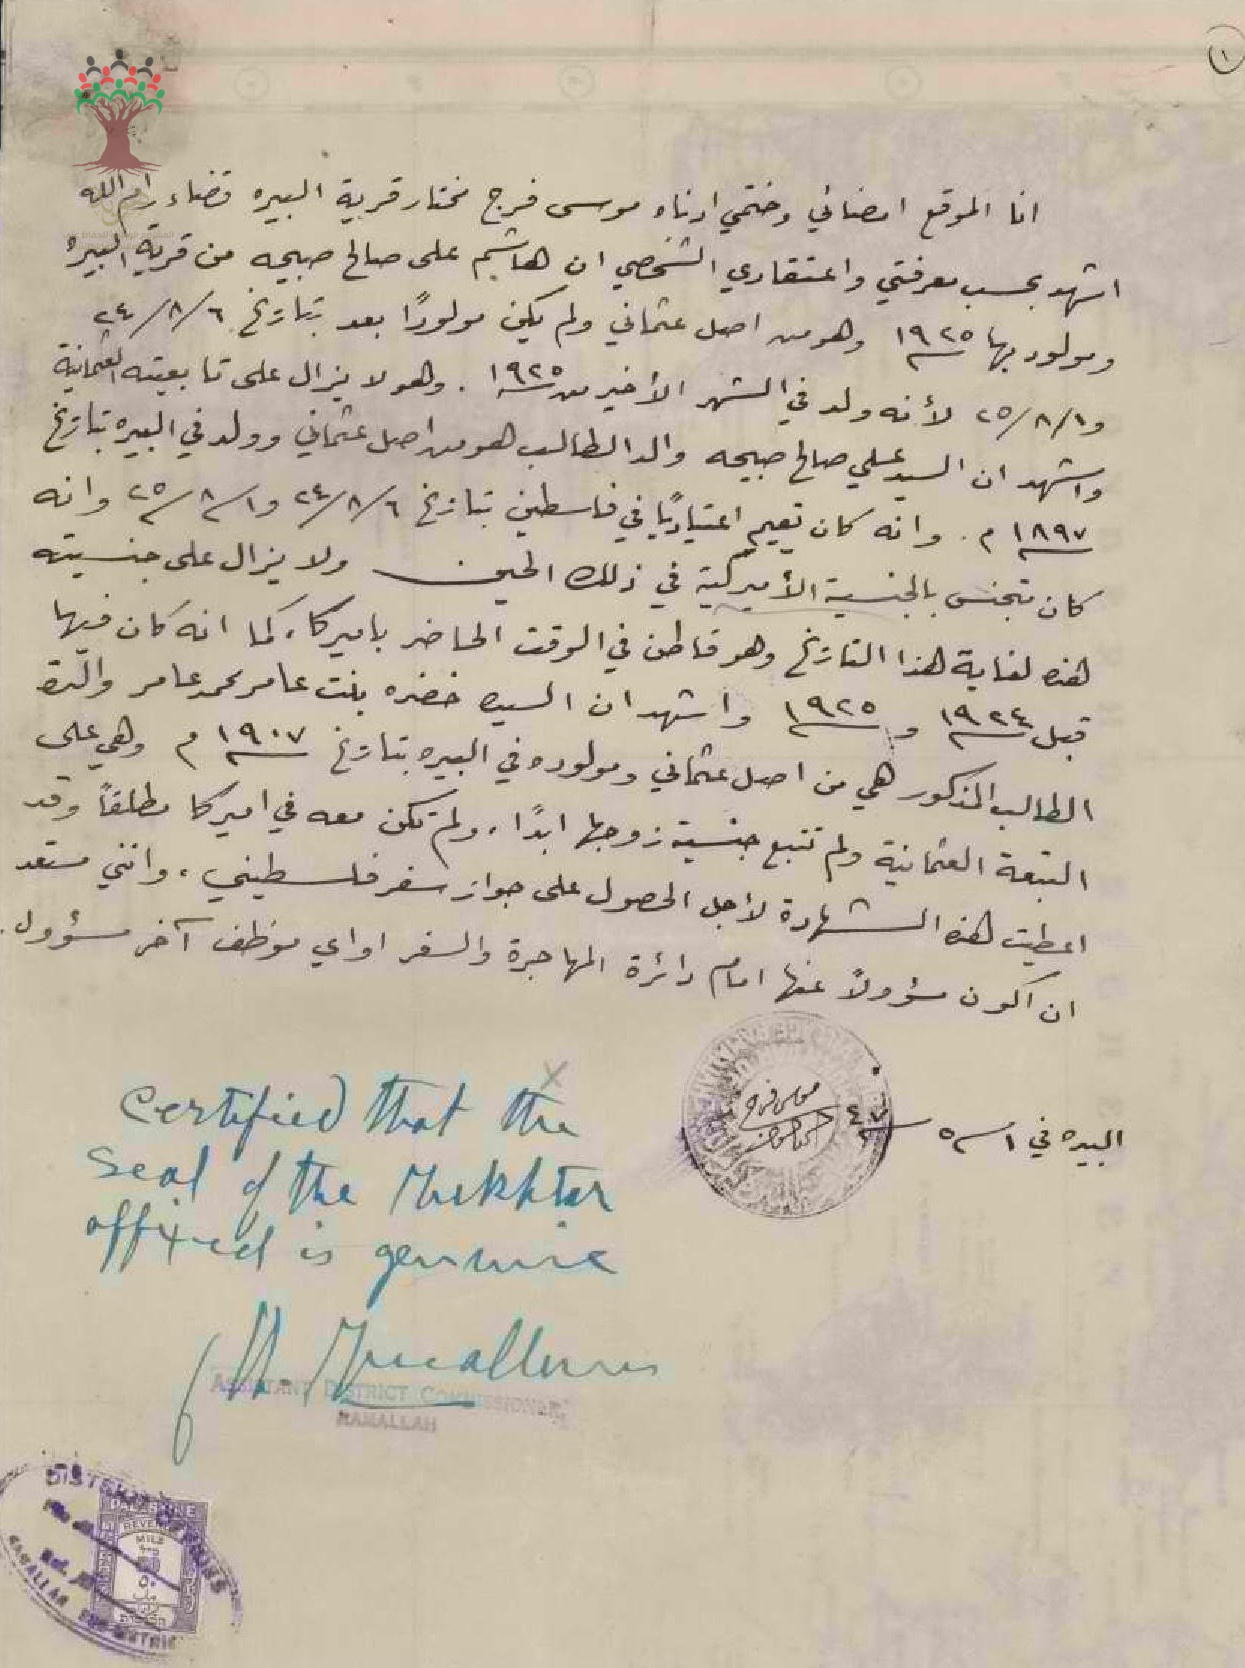 ١
انا الموقع امضائي وختمي ادناه موسى فرج مختار قرية البيره قضاء رام الله
اشهد بحسب معرفتي واعتقادي الشخصي ان هاشم على صالح صبيحه من قرية البيره
ومولود بها ١٩٢٥ وهو من اصل عثماني ولم يكن مولودًا بعد بتاريخ ٢٤/٨/٦
و٢٥/٨/١ لأنه ولد في الشهر الأخير من ١٩٢٥. وهو لا يزال على تابعيته العثمانية
واشهد ان السيد علي صالح صبيحه والد الطالب هو من اصل عثماني وولد في البيره بتاريخ
١٨٩٧ م. وانه كان يقيم اعتياديًا في فلسطين بتاريخ ٢٤/٨/٦ و٢٥/٨/١ وانه
كان تجنس بالجنسية الأميركية في ذلك الحين ولا يزال على جنسيته
هذه لغاية هذا التاريخ وهو قاطن في الوقت الحاضر باميركا، كما انه كان فيها
قبل ١٩٢٤ و ١٩٢٥ واشهد ان السيده خضره بنت عامر محمد عامر والدة
الطالب المذكور هي من اصل عثماني ومولوده في البيره بتاريخ ١٩٠٧ م وهي على
التبعة العثمانية ولم تتبع جنسية زوجها ابدًا، ولم تكن معه في اميركا مطلقاً وقد
اعطيت هذه الشهادة لأجل الحصول على جواز سفر فلسطيني، وانني مستعد
ان اكون مسؤولاً عنها امام دائرة المهاجرة والسفر او اي موظف آخر مسؤول.
البيره في ١/٥/٤٧
موسى فرج
Certified that the
seal of the Mukhtar
affixed is genuine
ASSISTANT DISTRICT COMMISSIONER
RAMALLAH
DISTRICT OFFICES
RAMALLAH SUB-DISTRICT
PALESTINE
REVENUE
MILS
٥٠